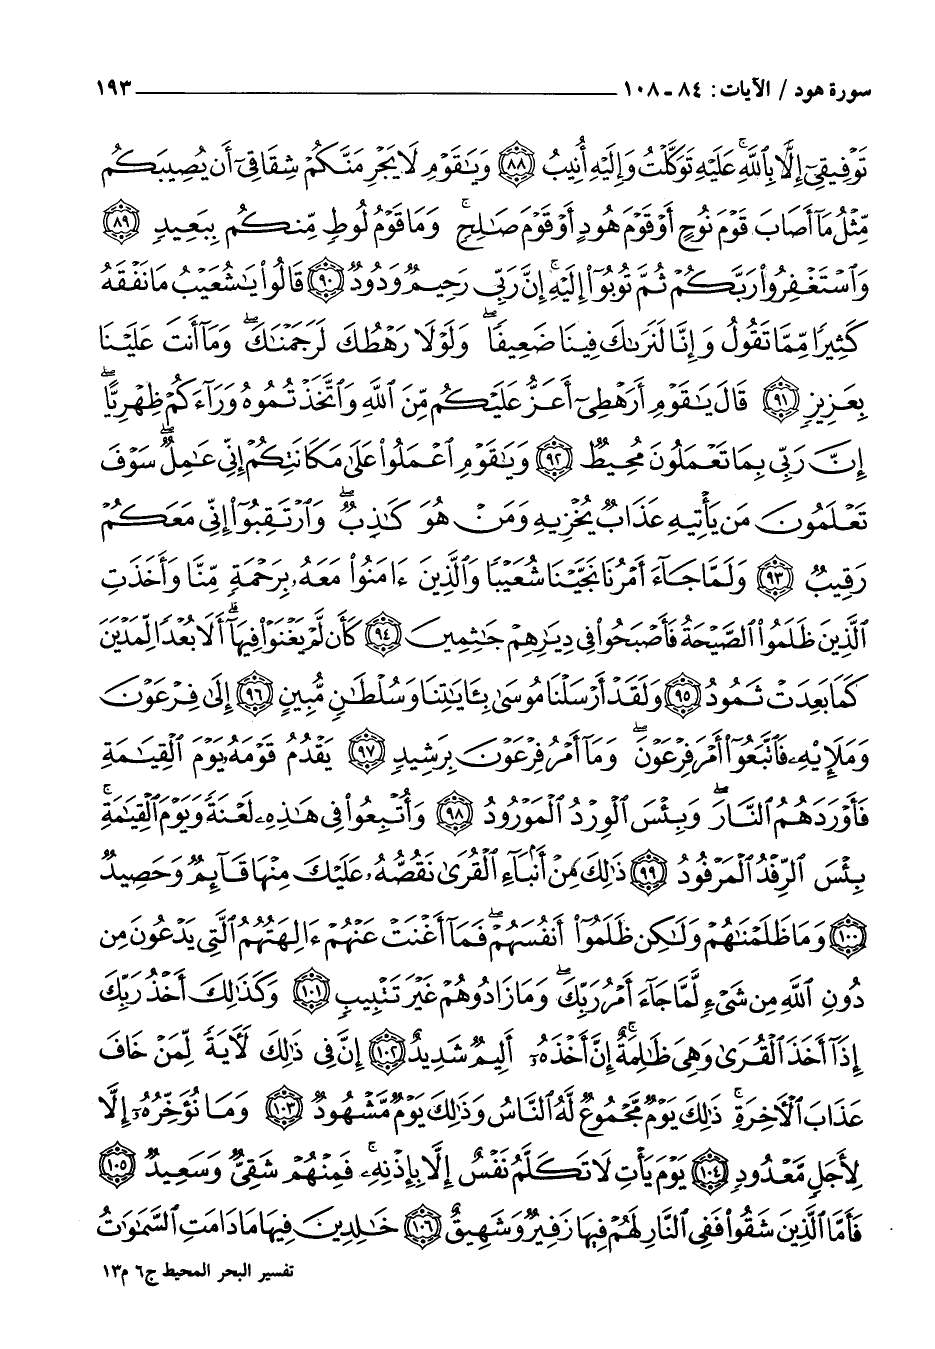 سورة هود / الآيات: ٨٤ - ١٠٨ ١٩٣
تَوْفِيقِىٓ إِلَّا بِٱللَّهِ ۚ عَلَيْهِ تَوَكَّلْتُ وَإِلَيْهِ أُنِيبُ ﴿٨٨﴾ وَيَٰقَوْمِ لَا يَجْرِمَنَّكُمْ شِقَاقِىٓ أَن يُصِيبَكُم
مِّثْلُ مَآ أَصَابَ قَوْمَ نُوحٍ أَوْ قَوْمَ هُودٍ أَوْ قَوْمَ صَٰلِحٍ ۚ وَمَا قَوْمُ لُوطٍ مِّنكُم بِبَعِيدٍ ﴿٨٩﴾
وَٱسْتَغْفِرُوا۟ رَبَّكُمْ ثُمَّ تُوبُوٓا۟ إِلَيْهِ ۚ إِنَّ رَبِّى رَحِيمٌ وَدُودٌ ﴿٩٠﴾ قَالُوا۟ يَٰشُعَيْبُ مَا نَفْقَهُ
كَثِيرًا مِّمَّا تَقُولُ وَإِنَّا لَنَرَىٰكَ فِينَا ضَعِيفًا ۖ وَلَوْلَا رَهْطُكَ لَرَجَمْنَٰكَ ۖ وَمَآ أَنتَ عَلَيْنَا
بِعَزِيزٍ ﴿٩١﴾ قَالَ يَٰقَوْمِ أَرَهْطِىٓ أَعَزُّ عَلَيْكُم مِّنَ ٱللَّهِ وَٱتَّخَذْتُمُوهُ وَرَآءَكُمْ ظِهْرِيًّا ۖ
إِنَّ رَبِّى بِمَا تَعْمَلُونَ مُحِيطٌ ﴿٩٢﴾ وَيَٰقَوْمِ ٱعْمَلُوا۟ عَلَىٰ مَكَانَتِكُمْ إِنِّى عَٰمِلٌ ۖ سَوْفَ
تَعْلَمُونَ مَن يَأْتِيهِ عَذَابٌ يُخْزِيهِ وَمَنْ هُوَ كَٰذِبٌ ۖ وَٱرْتَقِبُوٓا۟ إِنِّى مَعَكُمْ
رَقِيبٌ ﴿٩٣﴾ وَلَمَّا جَآءَ أَمْرُنَا نَجَّيْنَا شُعَيْبًا وَٱلَّذِينَ ءَامَنُوا۟ مَعَهُۥ بِرَحْمَةٍ مِّنَّا وَأَخَذَتِ
ٱلَّذِينَ ظَلَمُوا۟ ٱلصَّيْحَةُ فَأَصْبَحُوا۟ فِى دِيَٰرِهِمْ جَٰثِمِينَ ﴿٩٤﴾ كَأَن لَّمْ يَغْنَوْا۟ فِيهَآ ۗ أَلَا بُعْدًا لِّمَدْيَنَ
كَمَا بَعِدَتْ ثَمُودُ ﴿٩٥﴾ وَلَقَدْ أَرْسَلْنَا مُوسَىٰ بِـَٔايَٰتِنَا وَسُلْطَٰنٍ مُّبِينٍ ﴿٩٦﴾ إِلَىٰ فِرْعَوْنَ
وَمَلَإِيْهِۦ فَٱتَّبَعُوٓا۟ أَمْرَ فِرْعَوْنَ ۖ وَمَآ أَمْرُ فِرْعَوْنَ بِرَشِيدٍ ﴿٩٧﴾ يَقْدُمُ قَوْمَهُۥ يَوْمَ ٱلْقِيَٰمَةِ
فَأَوْرَدَهُمُ ٱلنَّارَ ۖ وَبِئْسَ ٱلْوِرْدُ ٱلْمَوْرُودُ ﴿٩٨﴾ وَأُتْبِعُوا۟ فِى هَٰذِهِۦ لَعْنَةً وَيَوْمَ ٱلْقِيَٰمَةِ ۚ
بِئْسَ ٱلرِّفْدُ ٱلْمَرْفُودُ ﴿٩٩﴾ ذَٰلِكَ مِنْ أَنۢبَآءِ ٱلْقُرَىٰ نَقُصُّهُۥ عَلَيْكَ مِنْهَا قَآئِمٌ وَحَصِيدٌ
﴿١٠٠﴾ وَمَا ظَلَمْنَٰهُمْ وَلَٰكِن ظَلَمُوٓا۟ أَنفُسَهُمْ ۖ فَمَآ أَغْنَتْ عَنْهُمْ ءَالِهَتُهُمُ ٱلَّتِى يَدْعُونَ مِن
دُونِ ٱللَّهِ مِن شَىْءٍ لَّمَّا جَآءَ أَمْرُ رَبِّكَ ۖ وَمَا زَادُوهُمْ غَيْرَ تَتْبِيبٍ ﴿١٠١﴾ وَكَذَٰلِكَ أَخْذُ رَبِّكَ
إِذَآ أَخَذَ ٱلْقُرَىٰ وَهِىَ ظَٰلِمَةٌ ۚ إِنَّ أَخْذَهُۥٓ أَلِيمٌ شَدِيدٌ ﴿١٠٢﴾ إِنَّ فِى ذَٰلِكَ لَءَايَةً لِّمَنْ خَافَ
عَذَابَ ٱلْءَاخِرَةِ ۚ ذَٰلِكَ يَوْمٌ مَّجْمُوعٌ لَّهُ ٱلنَّاسُ وَذَٰلِكَ يَوْمٌ مَّشْهُودٌ ﴿١٠٣﴾ وَمَا نُؤَخِّرُهُۥٓ إِلَّا
لِأَجَلٍ مَّعْدُودٍ ﴿١٠٤﴾ يَوْمَ يَأْتِ لَا تَكَلَّمُ نَفْسٌ إِلَّا بِإِذْنِهِۦ ۚ فَمِنْهُمْ شَقِىٌّ وَسَعِيدٌ ﴿١٠٥﴾
فَأَمَّا ٱلَّذِينَ شَقُوا۟ فَفِى ٱلنَّارِ لَهُمْ فِيهَا زَفِيرٌ وَشَهِيقٌ ﴿١٠٦﴾ خَٰلِدِينَ فِيهَا مَا دَامَتِ ٱلسَّمَٰوَٰتُ
تفسير البحر المحيط ج٦ م١٣